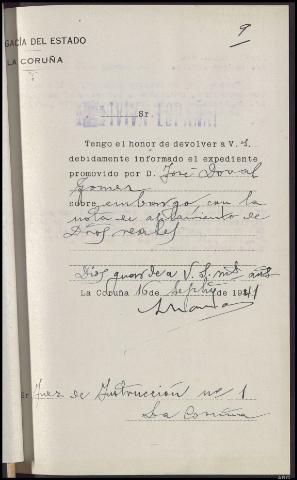 9
GACÍA DEL ESTADO
LA CORUÑA
¡VIVA ESPAÑA!
Sr.
Tengo el honor de devolver a V. S.
debidamente informado el expediente
promovido por D. José Doval
Gomez
sobre embargo, con la
nota de de
Dños reales
Dios guarde a V. S. mls. añs
La Coruña 16 de Sepbre de 1941
Sr. Juez de Instrucción nº 1
La Coruña